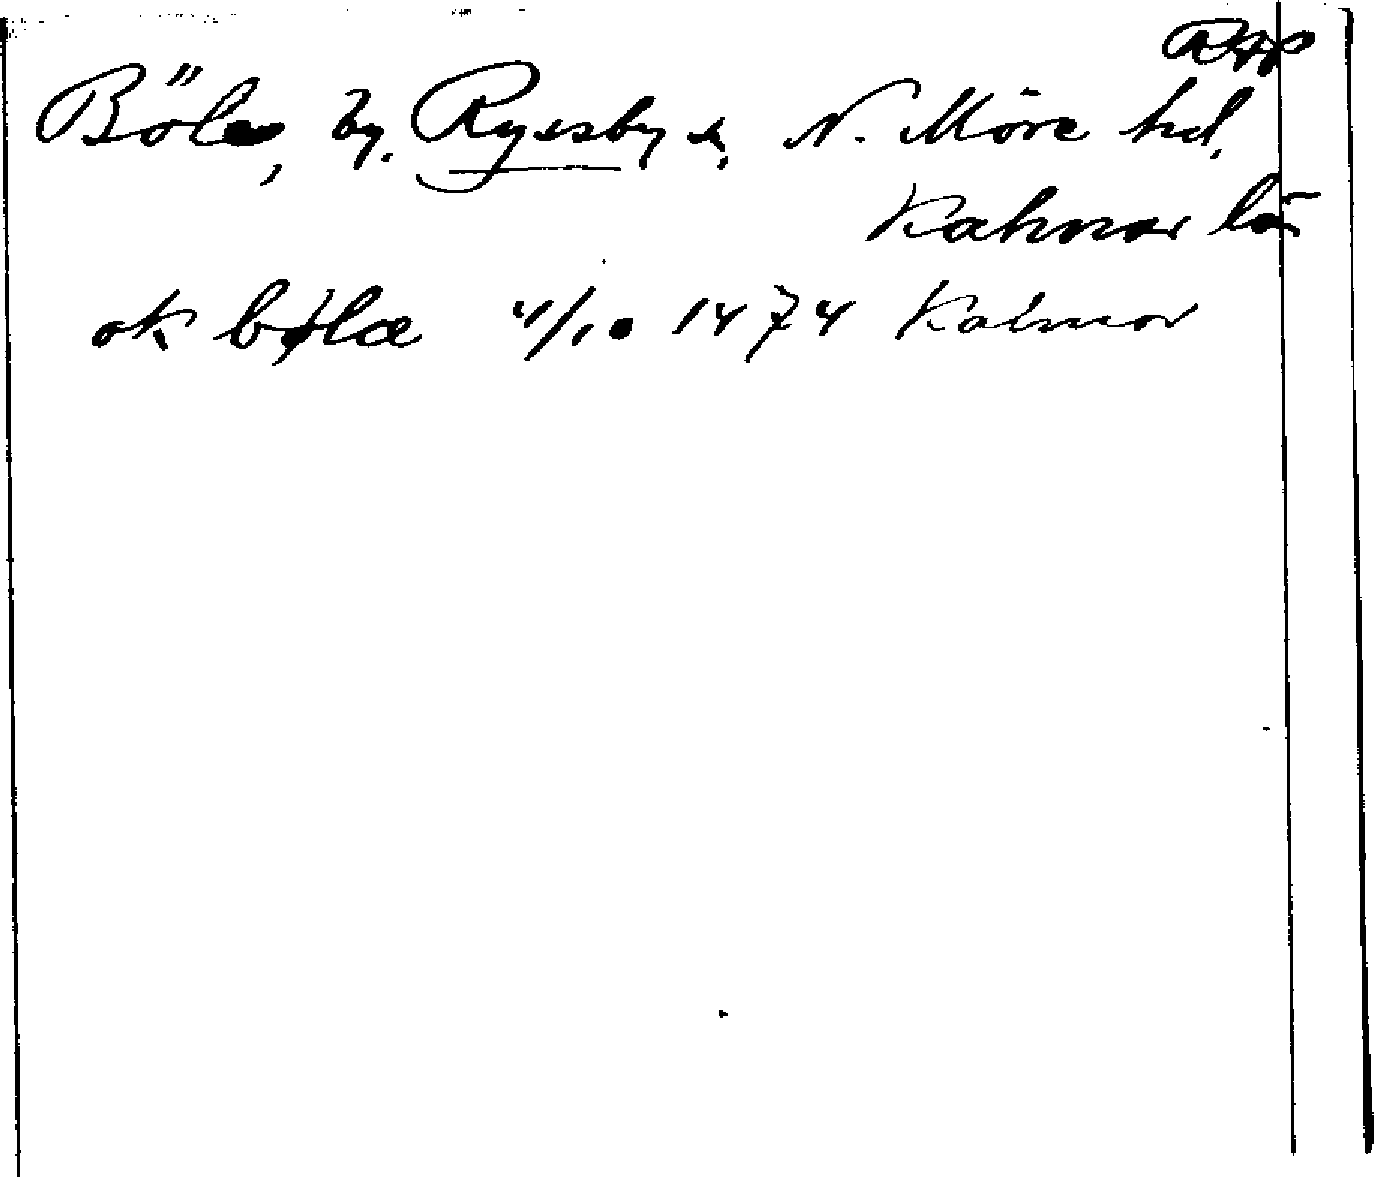 RAp
Böle, by, Ryssby s, N. Möre hd,
Kalmar län
ok bøla 4/10 1474 Kalmar